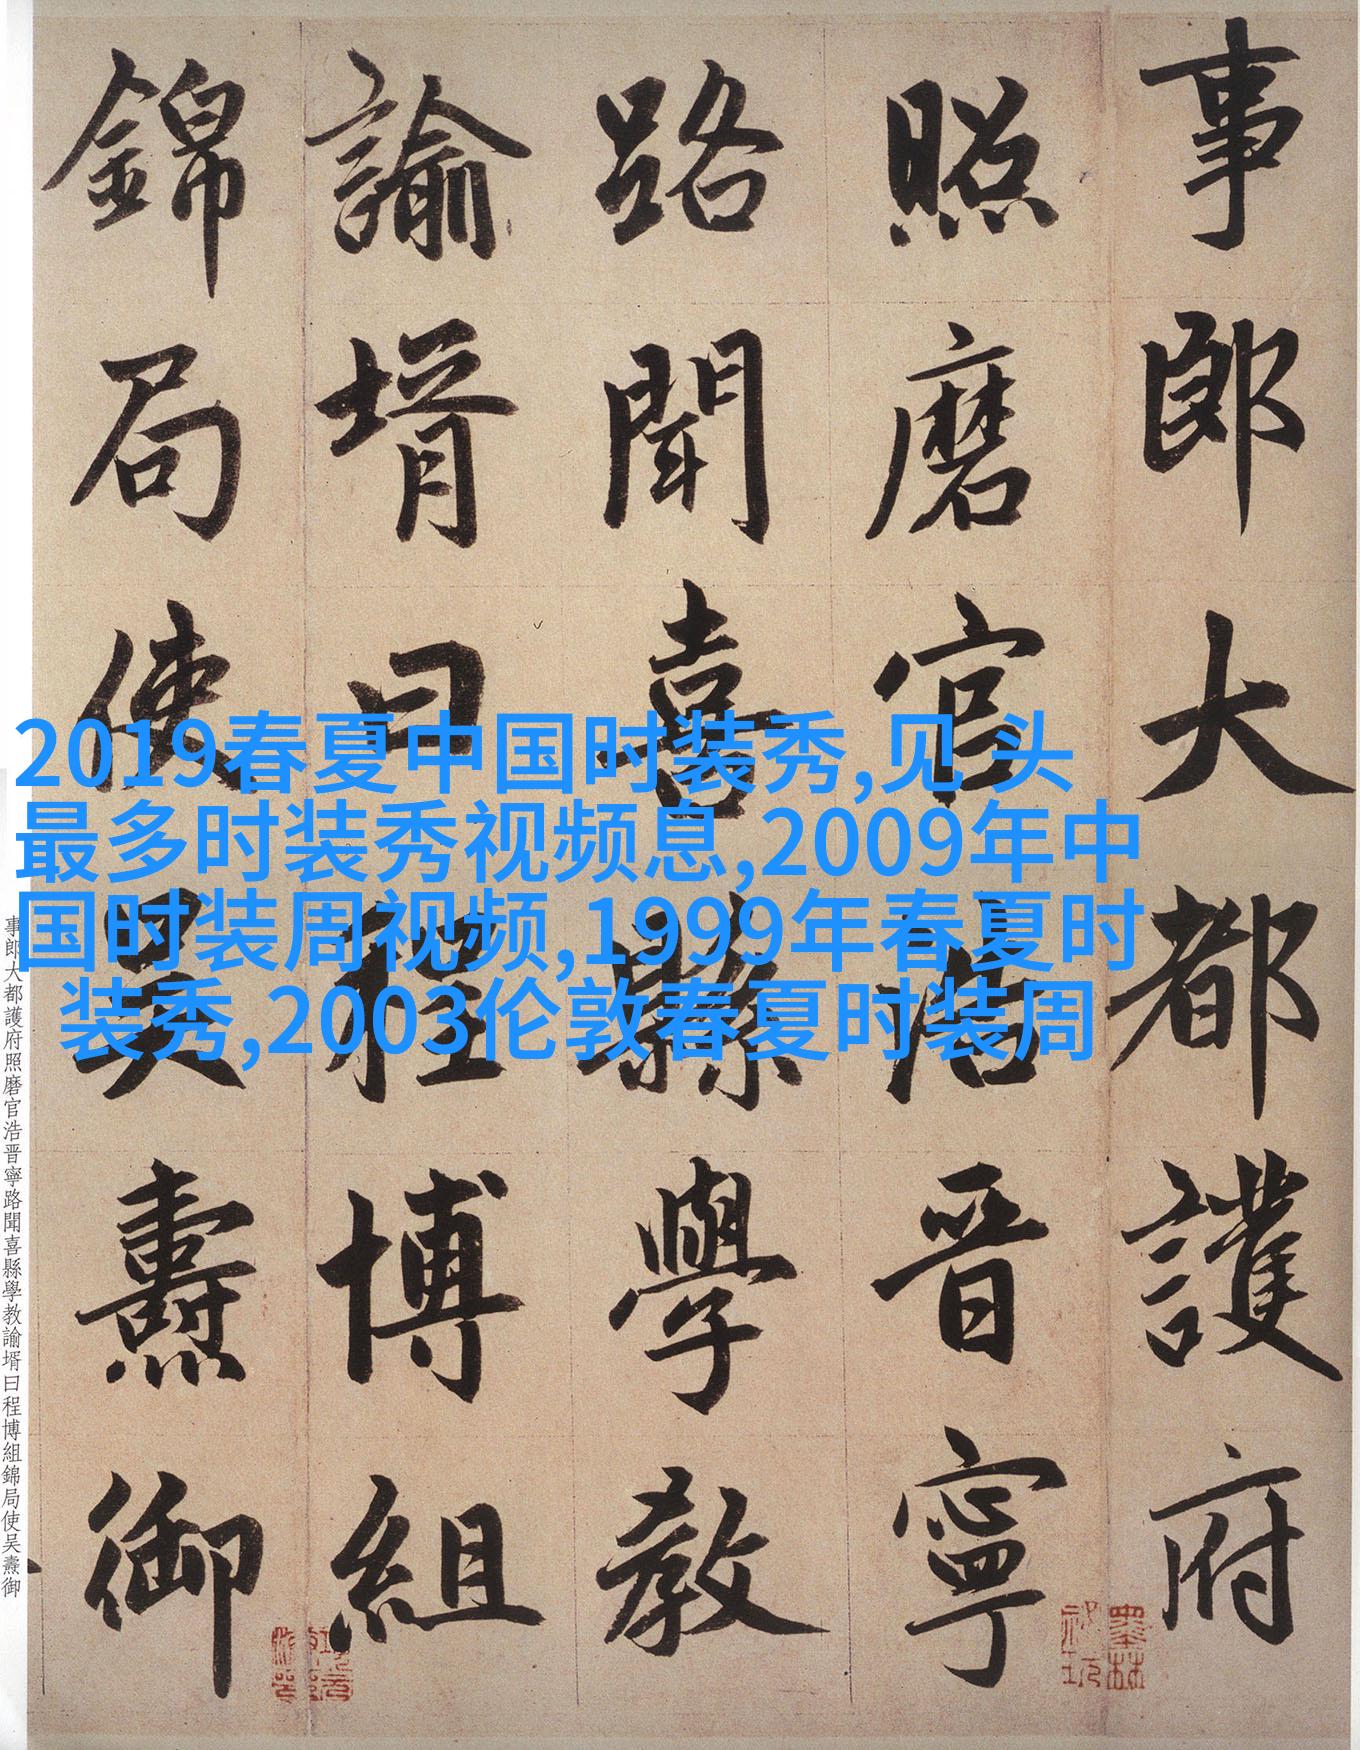 事郎大都護府
照磨官浩晋寧
路聞喜縣學教
諭壻曰程博組
錦局使吴燾御
2019春夏中国时装秀,见 头
最多时装秀视频息,2009年中
国时装周视频,1999年春夏时
装秀,2003伦敦春夏时装周
事郎大都護府照磨官浩晋寧路聞喜縣學教諭壻曰程博組錦局使吴燾御